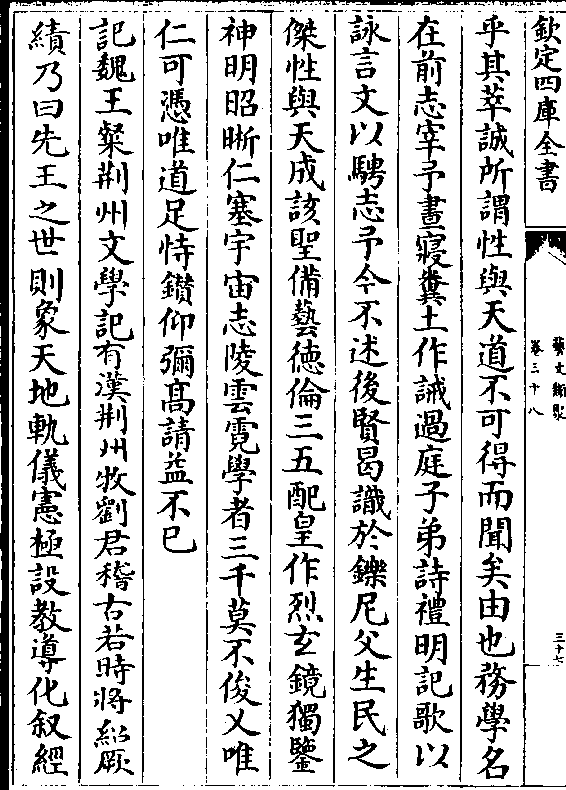 欽定四庫全書
藝文類聚
卷三十八
三十七
乎其萃誠所謂性與天道不可得而聞矣由也務學名
在前志宰予晝寢糞土作誡過庭子弟詩禮明記歌以
詠言文以騁志予今不述後賢曷識於鑠尼父生民之
傑性與天成該聖備藝德倫三五配皇作烈玄鏡獨鑒
神明昭晰仁塞宇宙志陵雲霓學者三千莫不俊乂唯
仁可憑唯道足恃鑽仰彌髙請益不已
記魏王粲荆州文學記有漢荆州牧劉君稽古若時將紹厥
績乃曰先王之世則象天地軌儀憲極設教導化叙經